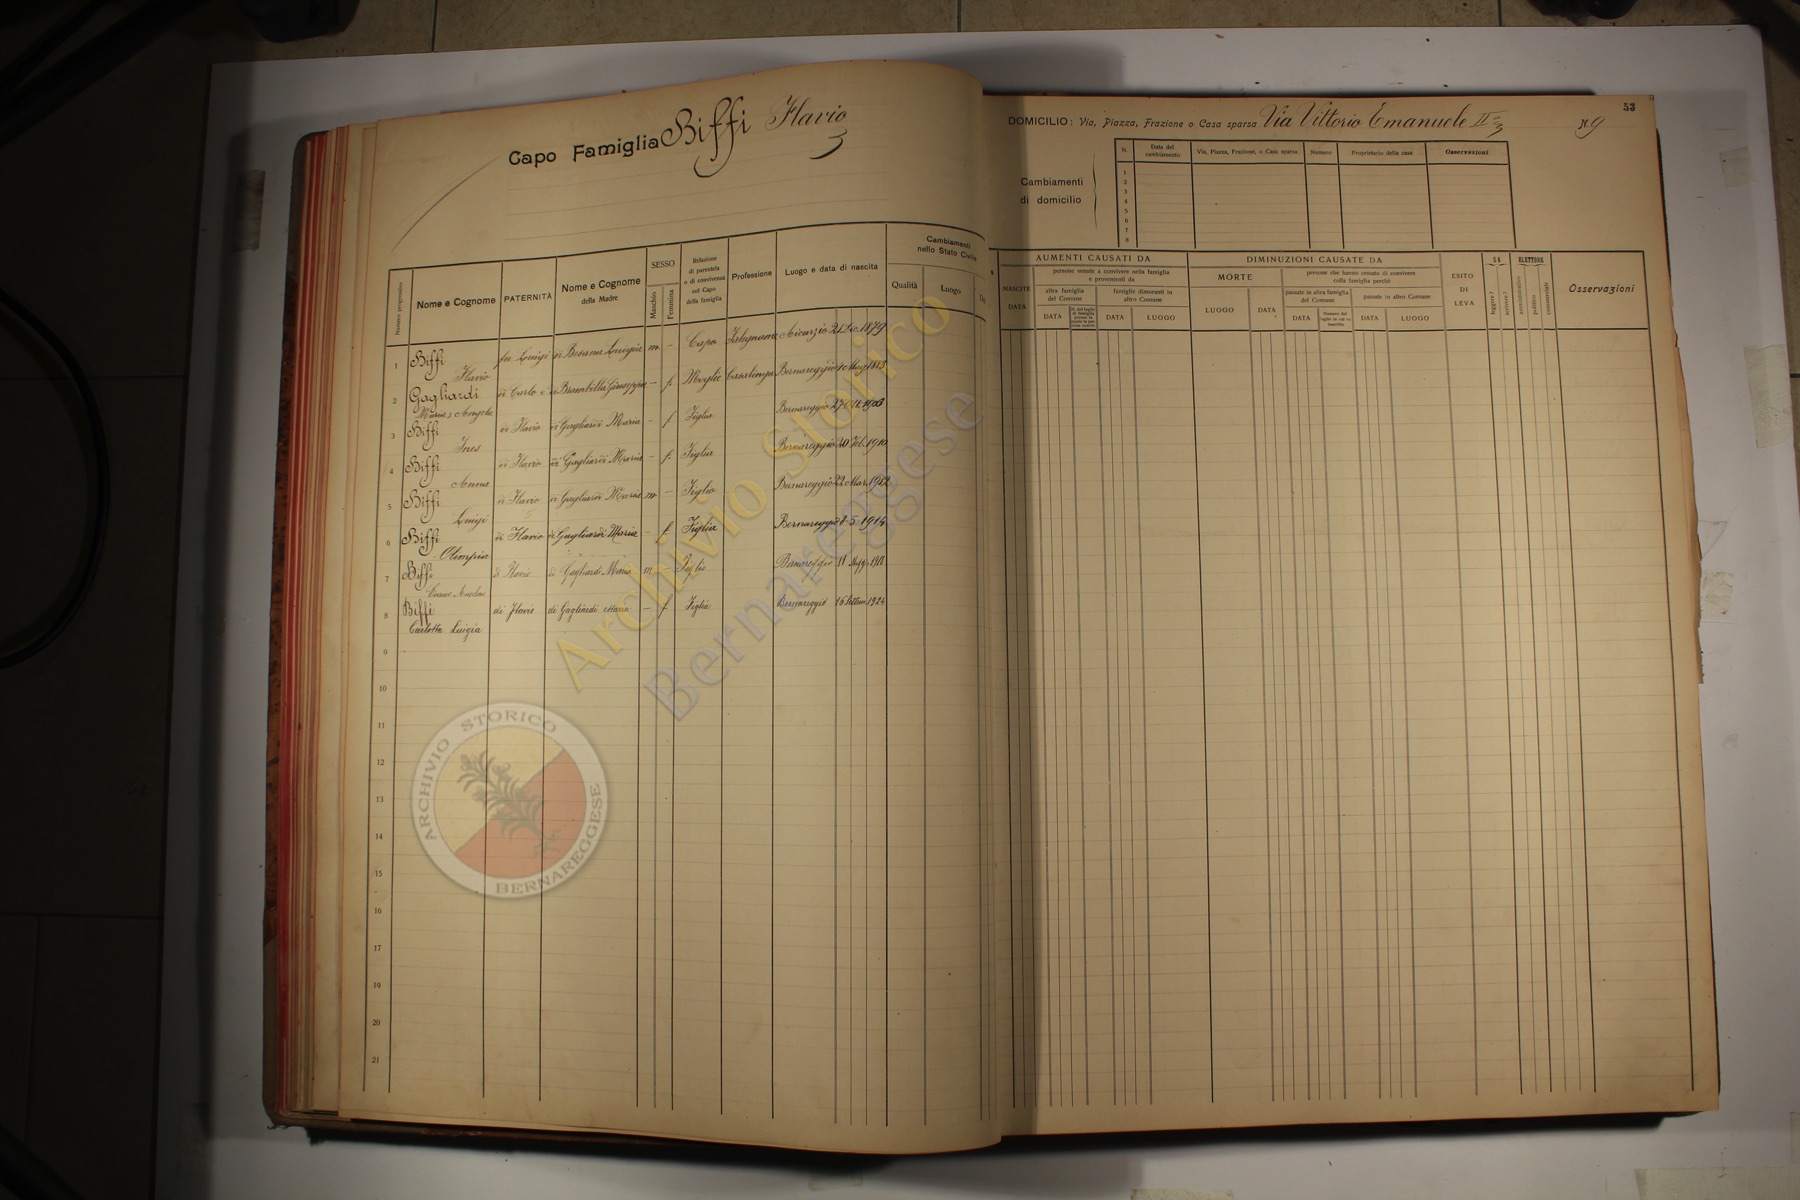 Capo Famiglia Biffi Flavio
Numero progressivo
Nome e Cognome
PATERNITÀ
Nome e Cognome
della Madre
SESSO
Maschio
Femmina
Relazione
di parentela
o di convivenza
col Capo
della famiglia
Professione
Luogo e data di nascita
Cambiamenti
nello Stato Civile
Qualità
Luogo
1 Biffi Flavio fu Luigi di Besana Luigia m. – Capo Falegname Aicurzio 21 Dic. 1879
2 Gagliardi Maria Angela di Carlo e di Brambilla Giuseppa – f. Moglie Casalinga Bernareggio Mag. 1883
3 Biffi Ines di Flavio di Gagliardi Maria – f Figlia Bernareggio 27 Ott. 1908
4 Biffi Anna di Flavio di Gagliardi Maria – f. Figlia Bernareggio 20 Feb. 1910
5 Biffi Luigi di Flavio di Gagliardi Maria m – Figlio Bernareggio 22 Mar. 1912
6 Biffi Olimpia di Flavio di Gagliardi Maria – f. Figlia Bernareggio 8-5-1914
7 Biffi di Flavio di Gagliardi Maria m – Figlio Bernareggio 11 Magg. 1918
8 Biffi Carlotta Luigia di Flavio di Gagliardi Maria – f Figlia Bernareggio 16 Settem 1924
9
10
11
12
13
14
15
16
17
18
19
20
21
53
DOMICILIO: Via, Piazza, Frazione o Casa sparsa Via Vittorio Emanuele II N. 9
Cambiamenti
di domicilio
N.
Data del
cambiamento
Via, Piazza, Frazione, o Casa sparsa
Numero
Proprietario della casa
Osservazioni
1
2
3
4
5
6
7
8
AUMENTI CAUSATI DA
NASCITE
DATA
persone venute a convivere nella famiglia
e provenienti da
altra famiglia
del Comune
DATA
famiglie dimoranti in
altro Comune
DATA
LUOGO
DIMINUZIONI CAUSATE DA
MORTE
LUOGO
DATA
persone che hanno cessato di convivere
colla famiglia perchè
passate in altra famiglia
del Comune
DATA
Numero del
foglio in cui fu
inscritta
passate in altro Comune
DATA
LUOGO
ESITO
DI
LEVA
SA
leggere?
scrivere?
ELETTORE
amministrativo
politico
commerciale
Osservazioni
Archivio Storico
Bernareggese
ARCHIVIO STORICO
BERNAREGGESE